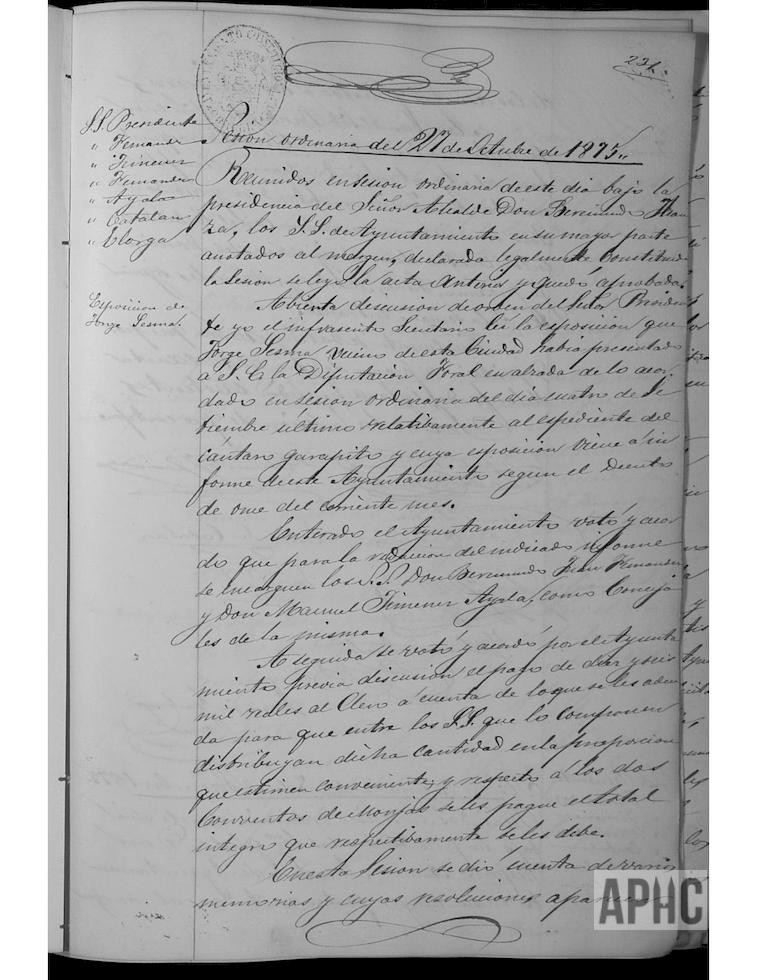 231
S.S. Presidente
" Fernandez
" Jimenez
" Fernandez
" Ayala
" Catalan
" Clorga
Sesion ordinaria del 27 de Octubre de 1875.
Reunidos en sesion ordinaria de este dia bajo la
presidencia del Señor Alcalde Don Beremundo
los S.S. de Ayuntamiento en su mayor parte
anotados al margen, declarada legalmente constituida
la Sesion se leyó la acta anterior y quedó aprobada.
Exposicion de
Jorge Sesma.
Abierta discusion de orden del Señor Presiden
te yo el infrascrito Secretario leí la esposicion que
Jorge Sesma vecino de esta Ciudad habia presentado
á S. E. la Diputacion Foral en alzada de lo acor
dado en sesion ordinaria del dia cuatro de Se
tiembre último relatibamente al espediente del
cántaro garapito y cuya esposicion viene á in
forme de este Ayuntamiento segun el Decreto
de once del corriente mes.
Enterado el Ayuntamiento votó y acor
dó que para la redaccion del indicado informe
se encarguen los S.S. Don Beremundo Fernandez
y Don Manuel Jimenez Ayala, como Conceja
les de la misma.
A seguida se votó y acordó por el Ayunta
miento previa discusion el pago de diez y seis
mil reales al Clero á cuenta de lo que se les adeu
da para que entre los S.S. que lo componen
distribuyan dicha cantidad en la proporcion
que estimen conveniente, y respecto á los dos
Conventos de Monjas se les pague el total
integro que respectibamente se les debe.
En esta Sesion se dió cuenta de varios
memorias y cuyas resoluciones aparecen
APHC